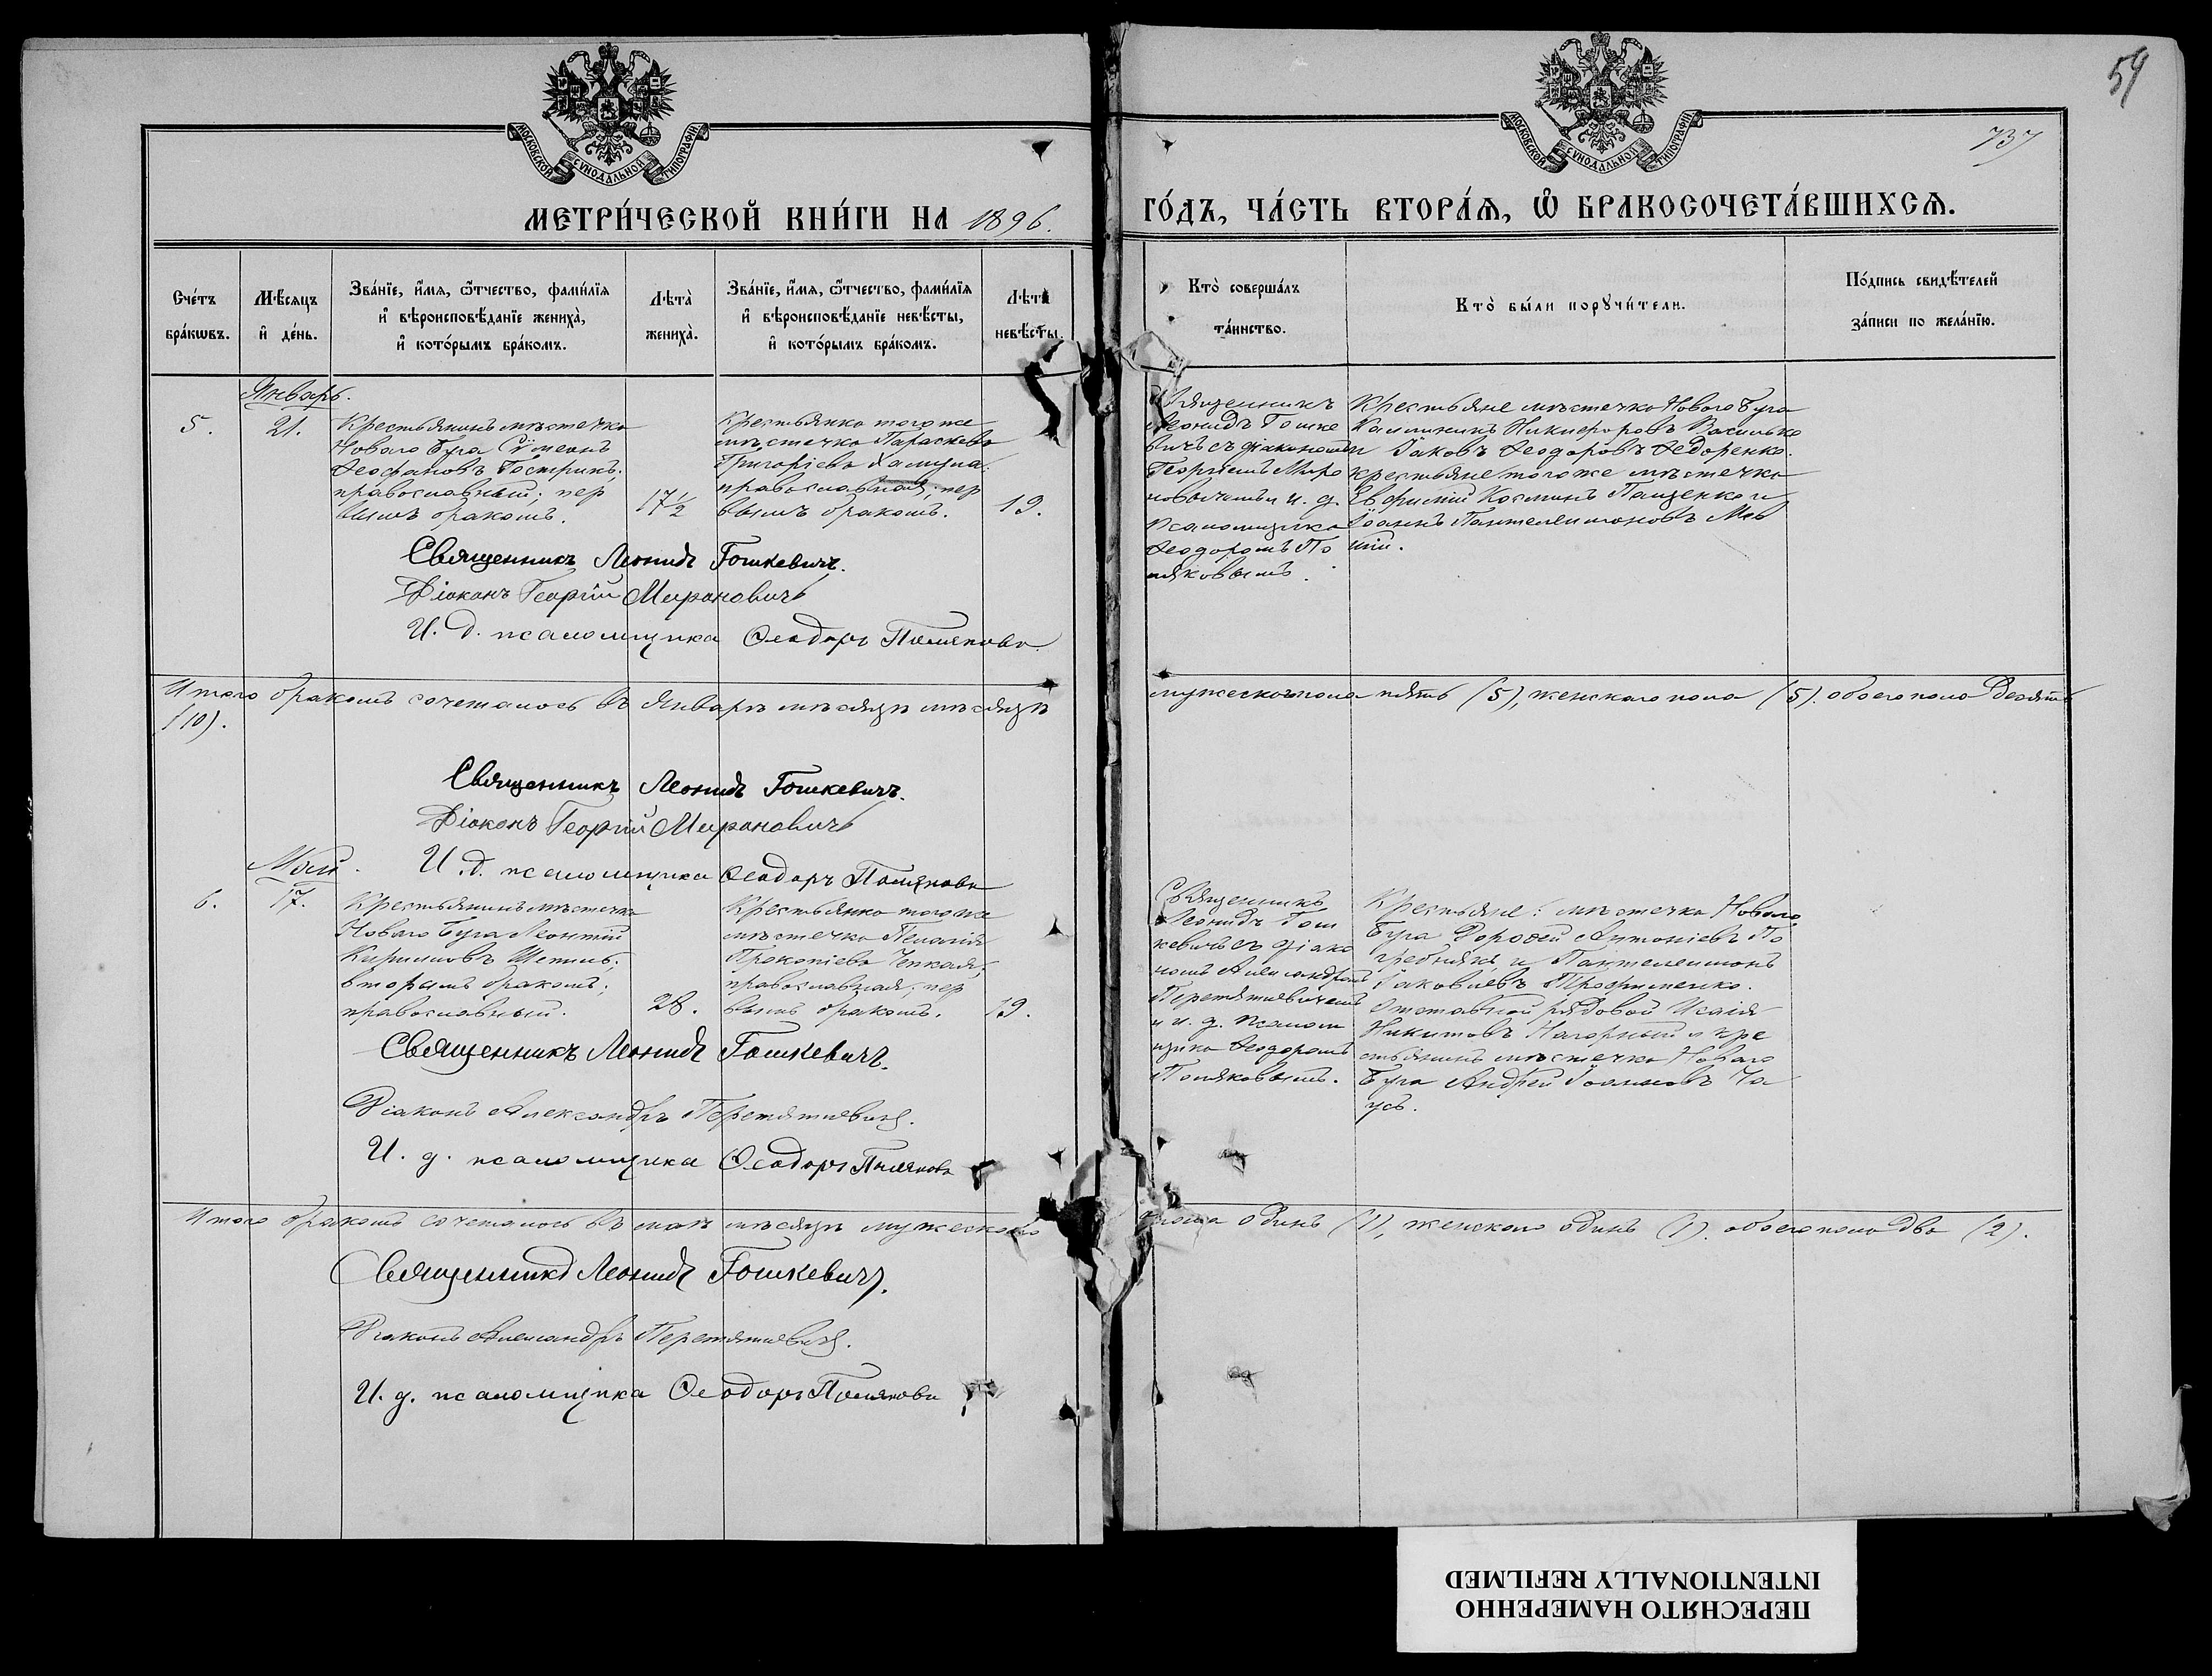 59
737
МОСКОВСКОЙ СѴНОДАЛЬНОЙ ТИПОГРАФІИ
МОСКОВСКОЙ СѴНОДАЛЬНОЙ ТИПОГРАФІИ
МЕТРИ́ЧЕСКОЙ КНИ́ГИ НА 1896.
ГО́ДЪ, ЧА́СТЬ ВТОРА́Ѧ, Ѽ БРАКОСОЧЕТА́ВШИХСѦ.
Сче́тъ
бра́кωвъ.
Мѣ́сяцъ
и҆ де́нь.
Зва́нїе, и҆́мя, ѻ҆́тчество, фами́лїя
и҆ вѣроисповѣ́данїе жениха̀,
и҆ кото́рымъ бра́комъ.
Лѣта̀
жениха̀.
Зва́нїе, и҆́мя, ѻ҆́тчество, фами́лїя
и҆ вѣроисповѣ́данїе невѣ́сты,
и҆ кото́рымъ бра́комъ.
Лѣта̀
невѣ́сты.
Кто̀ соверша́лъ
та́инство.
Кто̀ бы́ли порꙋчи́тели.
По́дпись свидѣ́телей
за́писи по жела́нїю.
Январь.
5.
21.
Крестьянинъ мѣстечка
Новаго Буга Сѵмеонъ
Ѳеофановъ Гострикъ;
православный; пер
вымъ бракомъ.
17½
Крестьянка того же
мѣстечка Параскева
Григоріева
православная; пер
вымъ бракомъ.
19.
Священникъ
Леонидъ Гошке
вичъ съ діакономъ
Георгіемъ Миро
новичемъ и и. д.
псаломщика
Ѳеодоромъ По
ляковымъ.
Крестьяне мѣстечка Новаго Буга
Каллиникъ Никифоровъ Василько
и Іаковъ Ѳеодоровъ Ѳедоренко.
крестьяне того же мѣстечка
Евфимій Косминъ Пащенко и
Іоаннъ Пантелеимоновъ
Священникъ Леонидъ Гошкевичъ.
Діаконъ Георгій Мироновичъ
И. д. псаломщика Ѳеодоръ Поляковъ.
Итого бракомъ сочеталось въ Январѣ мѣсяцѣ мѣсяцѣ
мужескаго пола пять (5), женскаго пола (5). обоего пола десять
(10).
Священникъ Леонидъ Гошкевичъ.
Діаконъ Георгій Мироновичъ
И. д. псаломщика Ѳеодоръ Поляковъ
Май.
6.
17.
Крестьянинъ мѣстечка
Новаго Буга Леонтій
Кирилловъ
вторымъ бракомъ;
православный.
28.
Крестьянка того же
мѣстечка Пелагія
Прокопіева
православная; пер
вымъ бракомъ.
19.
Священникъ
Леонидъ Гош
кевичъ съ діако
номъ Александромъ
Перетятковичемъ
и и. д. псалом
щика Ѳеодоромъ
Поляковымъ.
Крестьяне: мѣстечка Новаго
Буга Дороѳей Антоніевъ По
гребнякъ и Пантелеимонъ
Іаковлевъ Трофименко.
Отставной рядовой Исаія
Никитовъ Нагорный и кре
стьянинъ мѣстечка Новаго
Буга Андрей Іоанновъ Ча
усъ.
Священникъ Леонидъ Гошкевичъ.
Діаконъ Александръ Перетятковичъ.
И. д. псаломщика Ѳеодоръ Поляковъ
Итого бракомъ сочеталось въ маѣ мѣсяцѣ мужескаго
пола одинъ (1), женскаго одинъ (1). обоего пола два (2).
Священникъ Леонидъ Гошкевичъ.
Діаконъ Александръ Перетятковичъ.
И. д. псаломщика Ѳеодоръ Поляковъ
ПЕРЕСНЯТО НАМЕРЕННО
INTENTIONALLY REFILMED